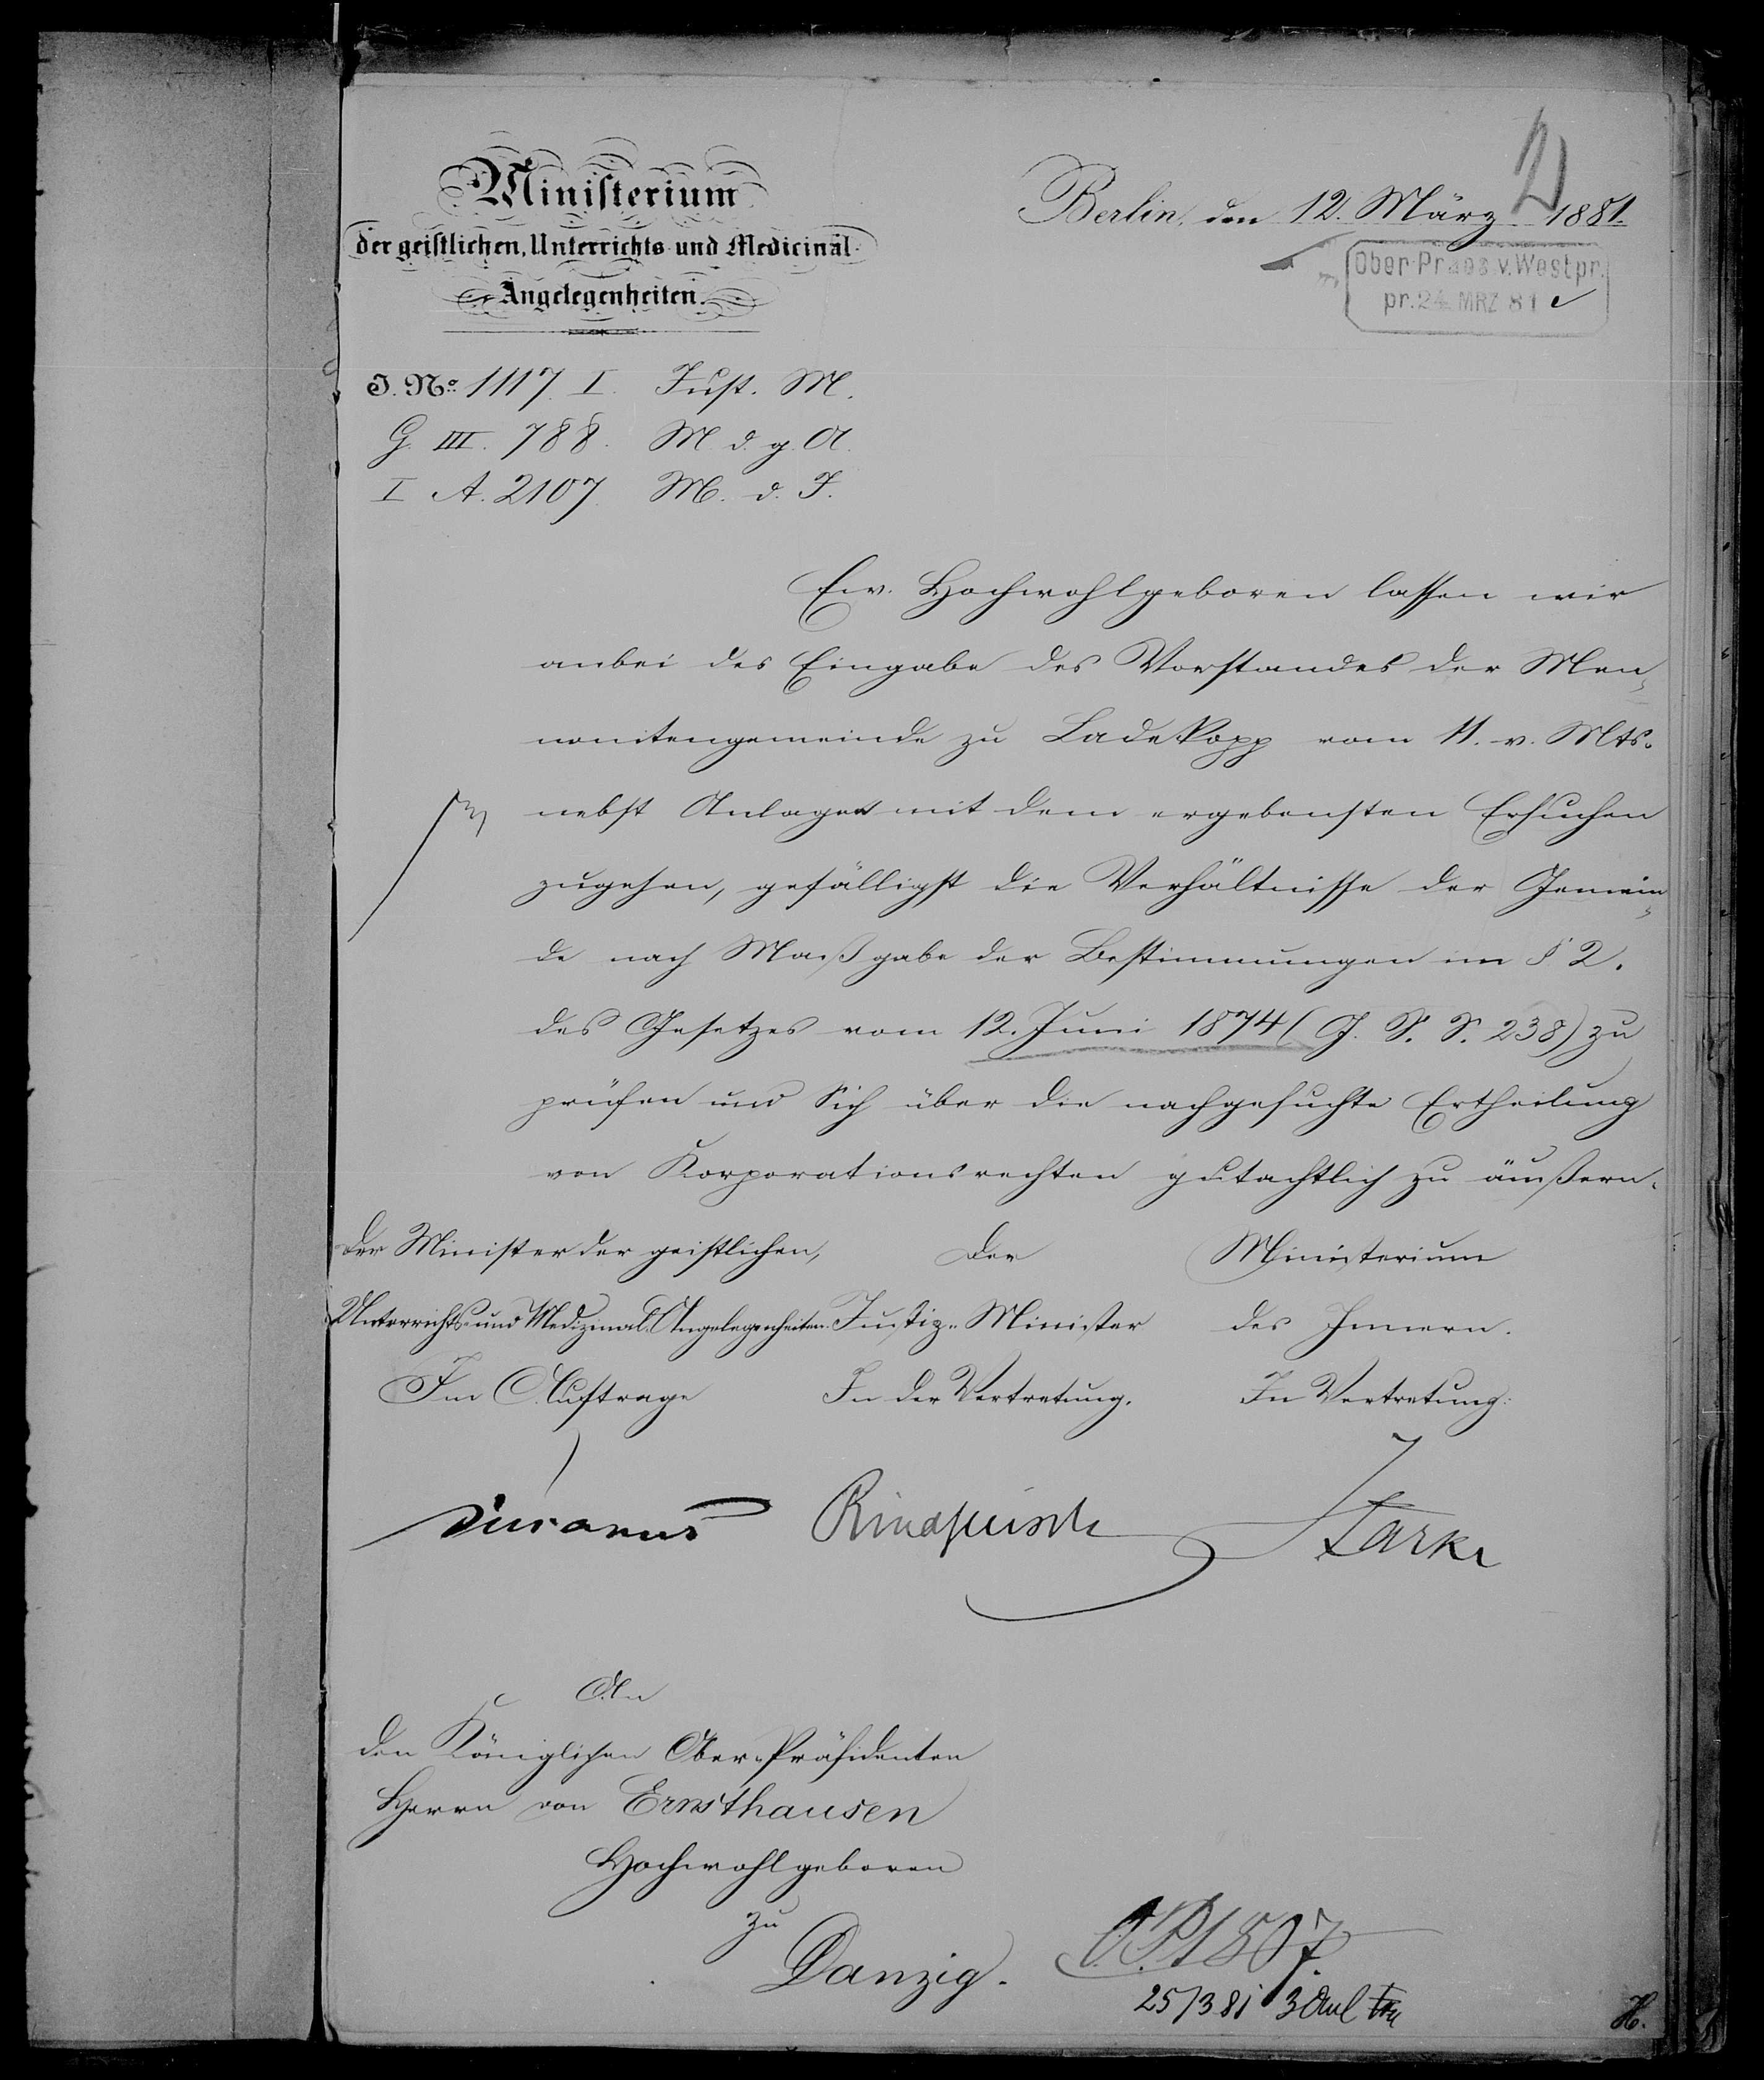 2
Ministerium
der geistlichen, Unterrichts- und Medicinal-
Angelegenheiten.
Berlin, den 12. März 1881.
Ober-Praes. v. Westpr.
pr. 24. MRZ 81
J. No. 1117. I. Just. M.
G. III. 788. M. d. g. A.
I A. 2107. M. d. J.
Ew. Hochwohlgeboren lassen wir
anbei des Eingabe des Vorstandes der Men-
nonitengemeinde zu Ladekopp vom 11. v. Mts.
nebst Anlagen mit dem ergebensten Ersuchen
zugehen, gefälligst die Verhältnisse der Gemein-
de nach Maßgabe der Bestimmungen im § 2.
des Gesetzes vom 12. Juni 1874 (G. S. S. 238) zu
prüfen und Sich über die nachgesuchte Ertheilung
von Korporationsrechten gutachtlich zu äußern.
Der Minister der geistlichen, Der Ministerium
Unterrichts- und Medizinal-Angelegenheiten. Justiz-Minister des Innern.
Im Auftrage In der Vertretung. In Vertretung:
Lucanus Rindfleisch Starke
An
den Königlichen Ober-Präsidenten
Herrn von Ernsthausen
Hochwohlgeboren
zu
Danzig.
O.P. 1807.
25/3 81 3 Anl
H.